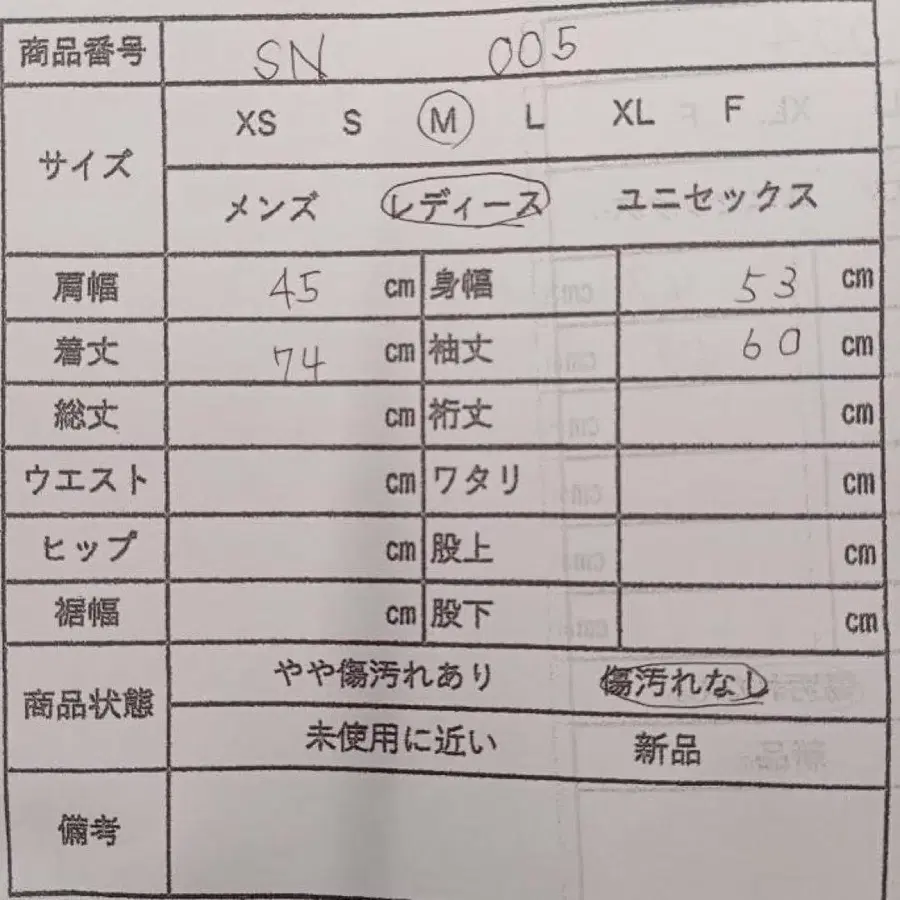 商品番号 SN 005
サイズ XS S M L XL F
メンズ レディース ユニセックス
肩幅 45 cm 身幅 53 cm
着丈 74 cm 袖丈 60 cm
総丈 cm 裄丈 cm
ウエスト cm ワタリ cm
ヒップ cm 股上 cm
裾幅 cm 股下 cm
商品状態 やや傷汚れあり 傷汚れなし
未使用に近い 新品
備考